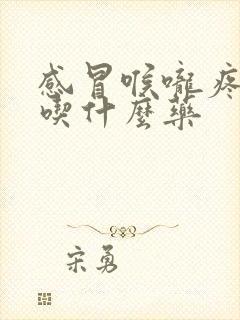 感冒喉嚨疼
喫什麼藥
宋勇